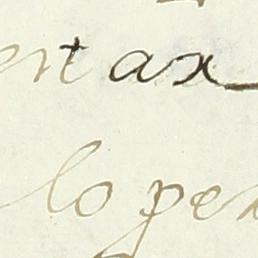 entax
lope